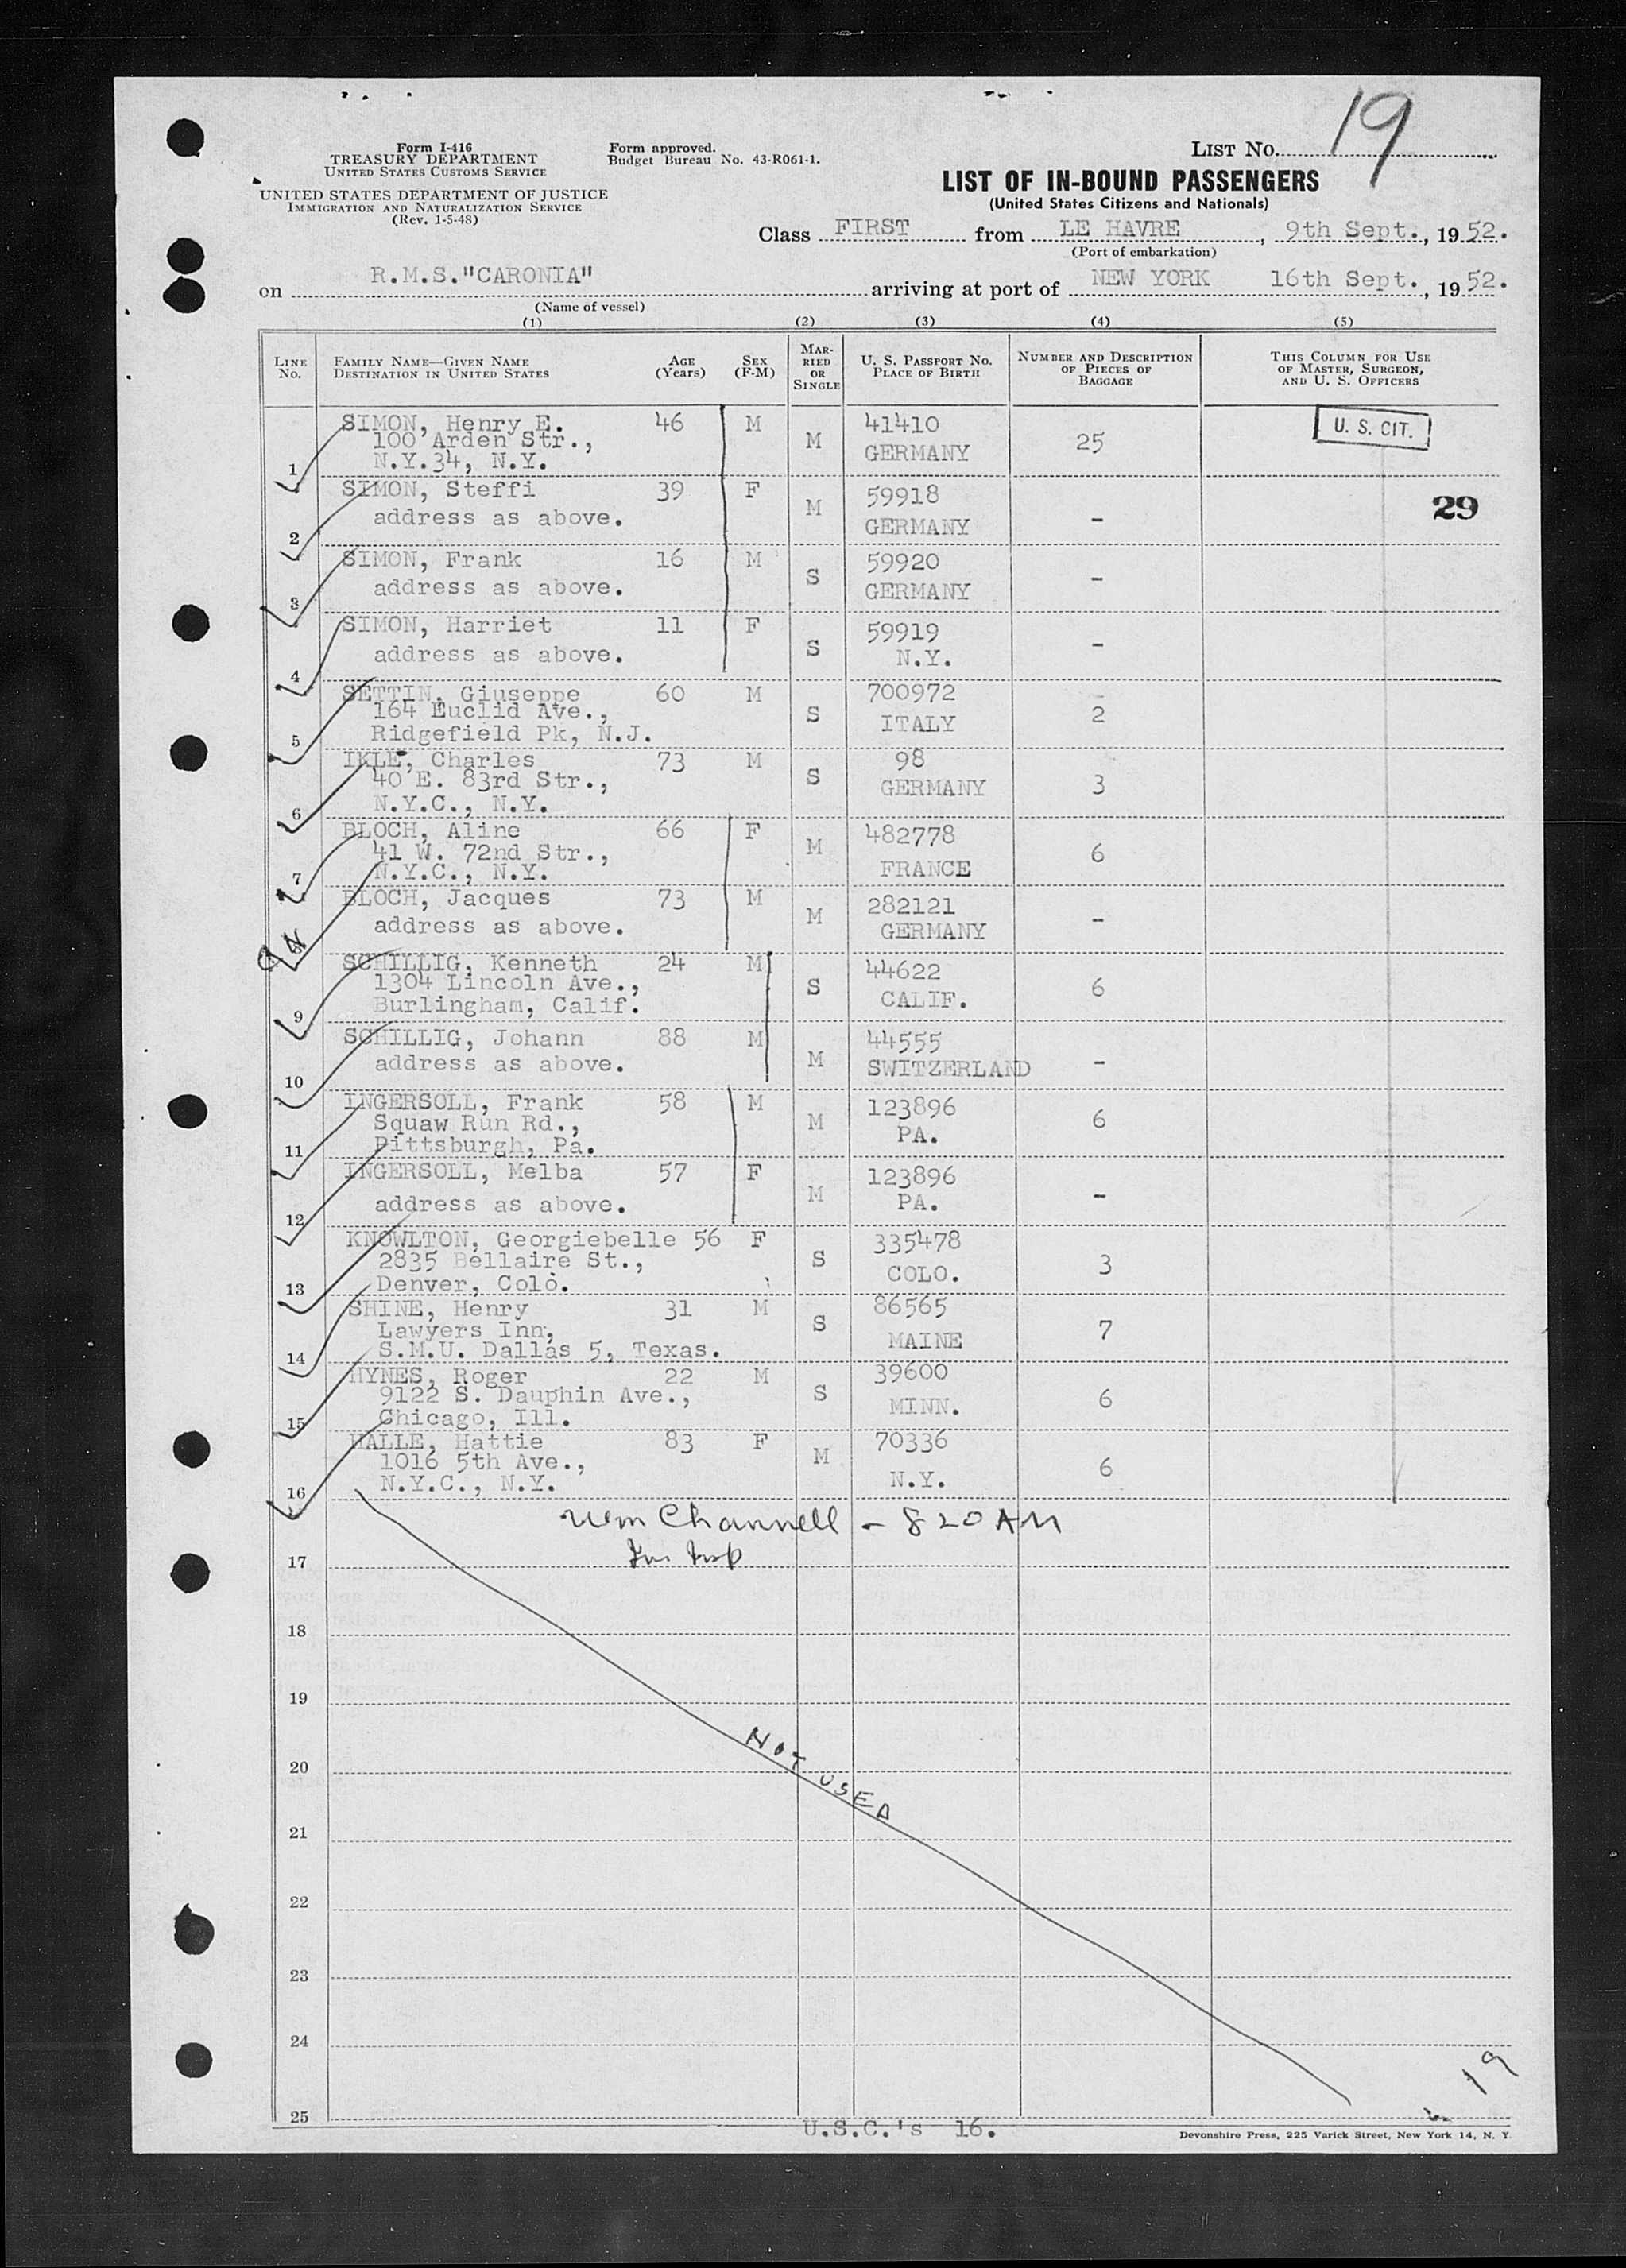 19
Form I-416
TREASURY DEPARTMENT
UNITED STATES CUSTOMS SERVICE
UNITED STATES DEPARTMENT OF JUSTICE
IMMIGRATION AND NATURALIZATION SERVICE
(Rev. 1-5-48)
Form approved.
Budget Bureau No. 43-R061-1.
LIST No.
LIST OF IN-BOUND PASSENGERS
(United States Citizens and Nationals)
Class FIRST from LE HAVRE, 9th Sept., 19 52.
(Port of embarkation)
on R.M.S."CARONIA" arriving at port of NEW YORK 16th Sept., 19 52.
(Name of vessel)
(1) (2) (3) (4) (5)
LINE No. FAMILY NAME—GIVEN NAME DESTINATION IN UNITED STATES AGE (Years) SEX (F-M) MARRIED OR SINGLE U. S. PASSPORT No. PLACE OF BIRTH NUMBER AND DESCRIPTION OF PIECES OF BAGGAGE THIS COLUMN FOR USE OF MASTER, SURGEON, AND U. S. OFFICERS
SIMON, Henry E. 46 M M 41410 25 U. S. CIT.
100 Arden Str., GERMANY
1 N.Y.34, N.Y.
SIMON, Steffi 39 F M 59918 - 29
2 address as above. GERMANY
SIMON, Frank 16 M S 59920 -
3 address as above. GERMANY
SIMON, Harriet 11 F S 59919 -
4 address as above. N.Y.
SETTIN, Giuseppe 60 M S 700972 2
164 Euclid Ave., ITALY
5 Ridgefield Pk, N.J.
IKLE, Charles 73 M S 98 3
40 E. 83rd Str., GERMANY
6 N.Y.C., N.Y.
BLOCH, Aline 66 F M 482778 6
41 W. 72nd Str., FRANCE
7 N.Y.C., N.Y.
BLOCH, Jacques 73 M M 282121 -
address as above. GERMANY
SCHILLIG, Kenneth 24 M S 44622 6
1304 Lincoln Ave., CALIF.
9 Burlingham, Calif.
SCHILLIG, Johann 88 M M 44555 -
10 address as above. SWITZERLAND
INGERSOLL, Frank 58 M M 123896 6
Squaw Run Rd., PA.
11 Pittsburgh, Pa.
INGERSOLL, Melba 57 F M 123896 -
12 address as above. PA.
KNOWLTON, Georgiebelle 56 F S 335478 3
2835 Bellaire St., COLO.
13 Denver, Colo.
SHINE, Henry 31 M S 86565 7
Lawyers Inn, MAINE
14 S.M.U. Dallas 5, Texas.
HYNES, Roger 22 M S 39600 6
9122 S. Dauphin Ave., MINN.
15 Chicago, Ill.
HALLE, Hattie 83 F M 70336 6
1016 5th Ave., N.Y.
16 N.Y.C., N.Y.
Channell - 820 AM
17
18
19
20 NOT USED
21
22
23
24
19
25
U.S.C.'s 16.
Devonshire Press, 225 Varick Street, New York 14, N. Y.